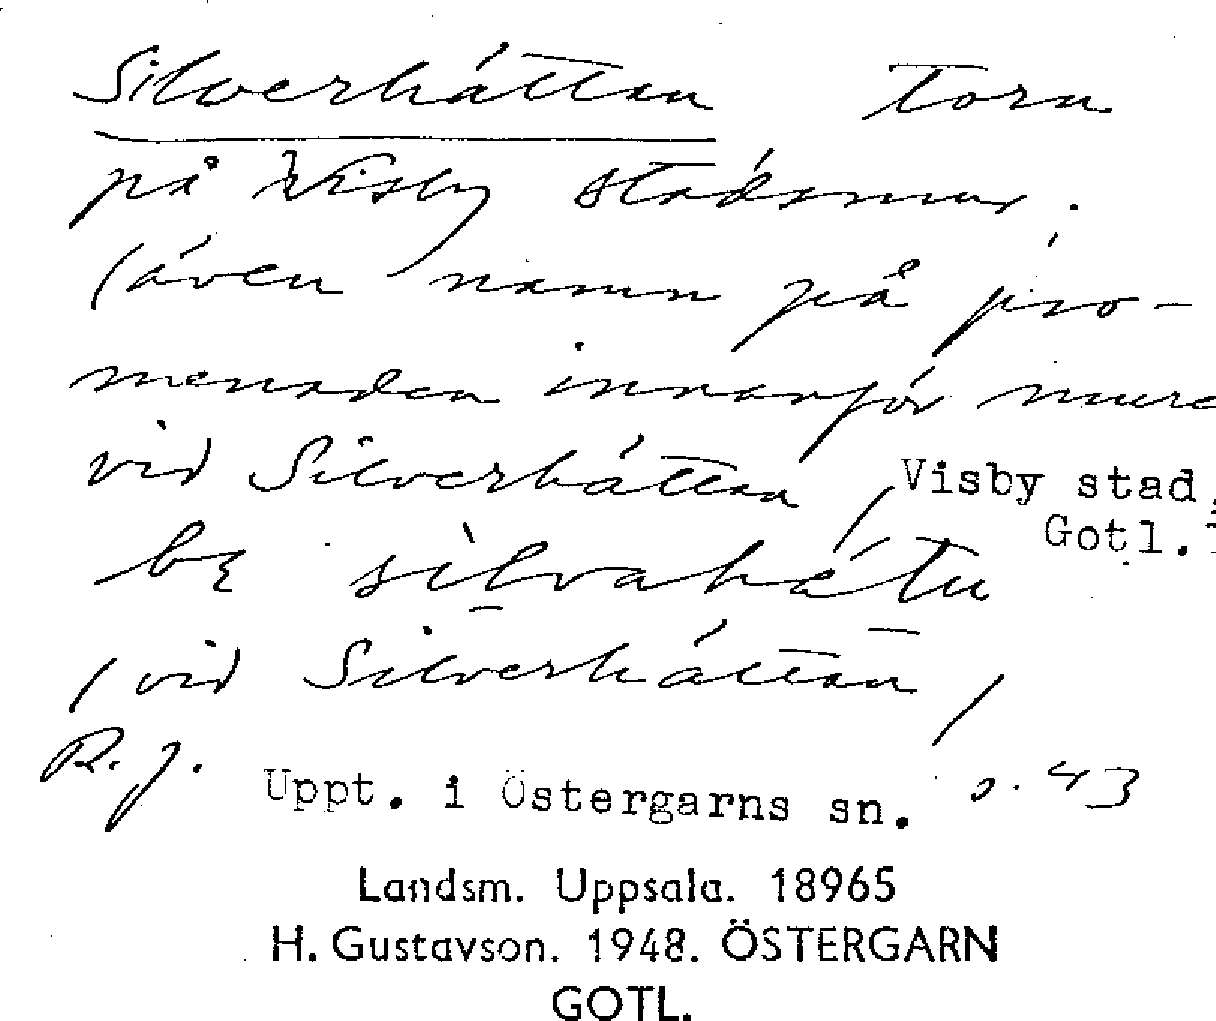 Silverhättan torn
på Visby stadsmur.
(även namn på pro-
menaden innanför mure
vid Silverhättan)
Visby stad,
Gotl.
silvahätu
(vid Silverhättan)
R. J. Uppt. i Östergarns sn. s. 43
Landsm. Uppsala. 18965
H. Gustavson. 1948. ÖSTERGARN
GOTL.